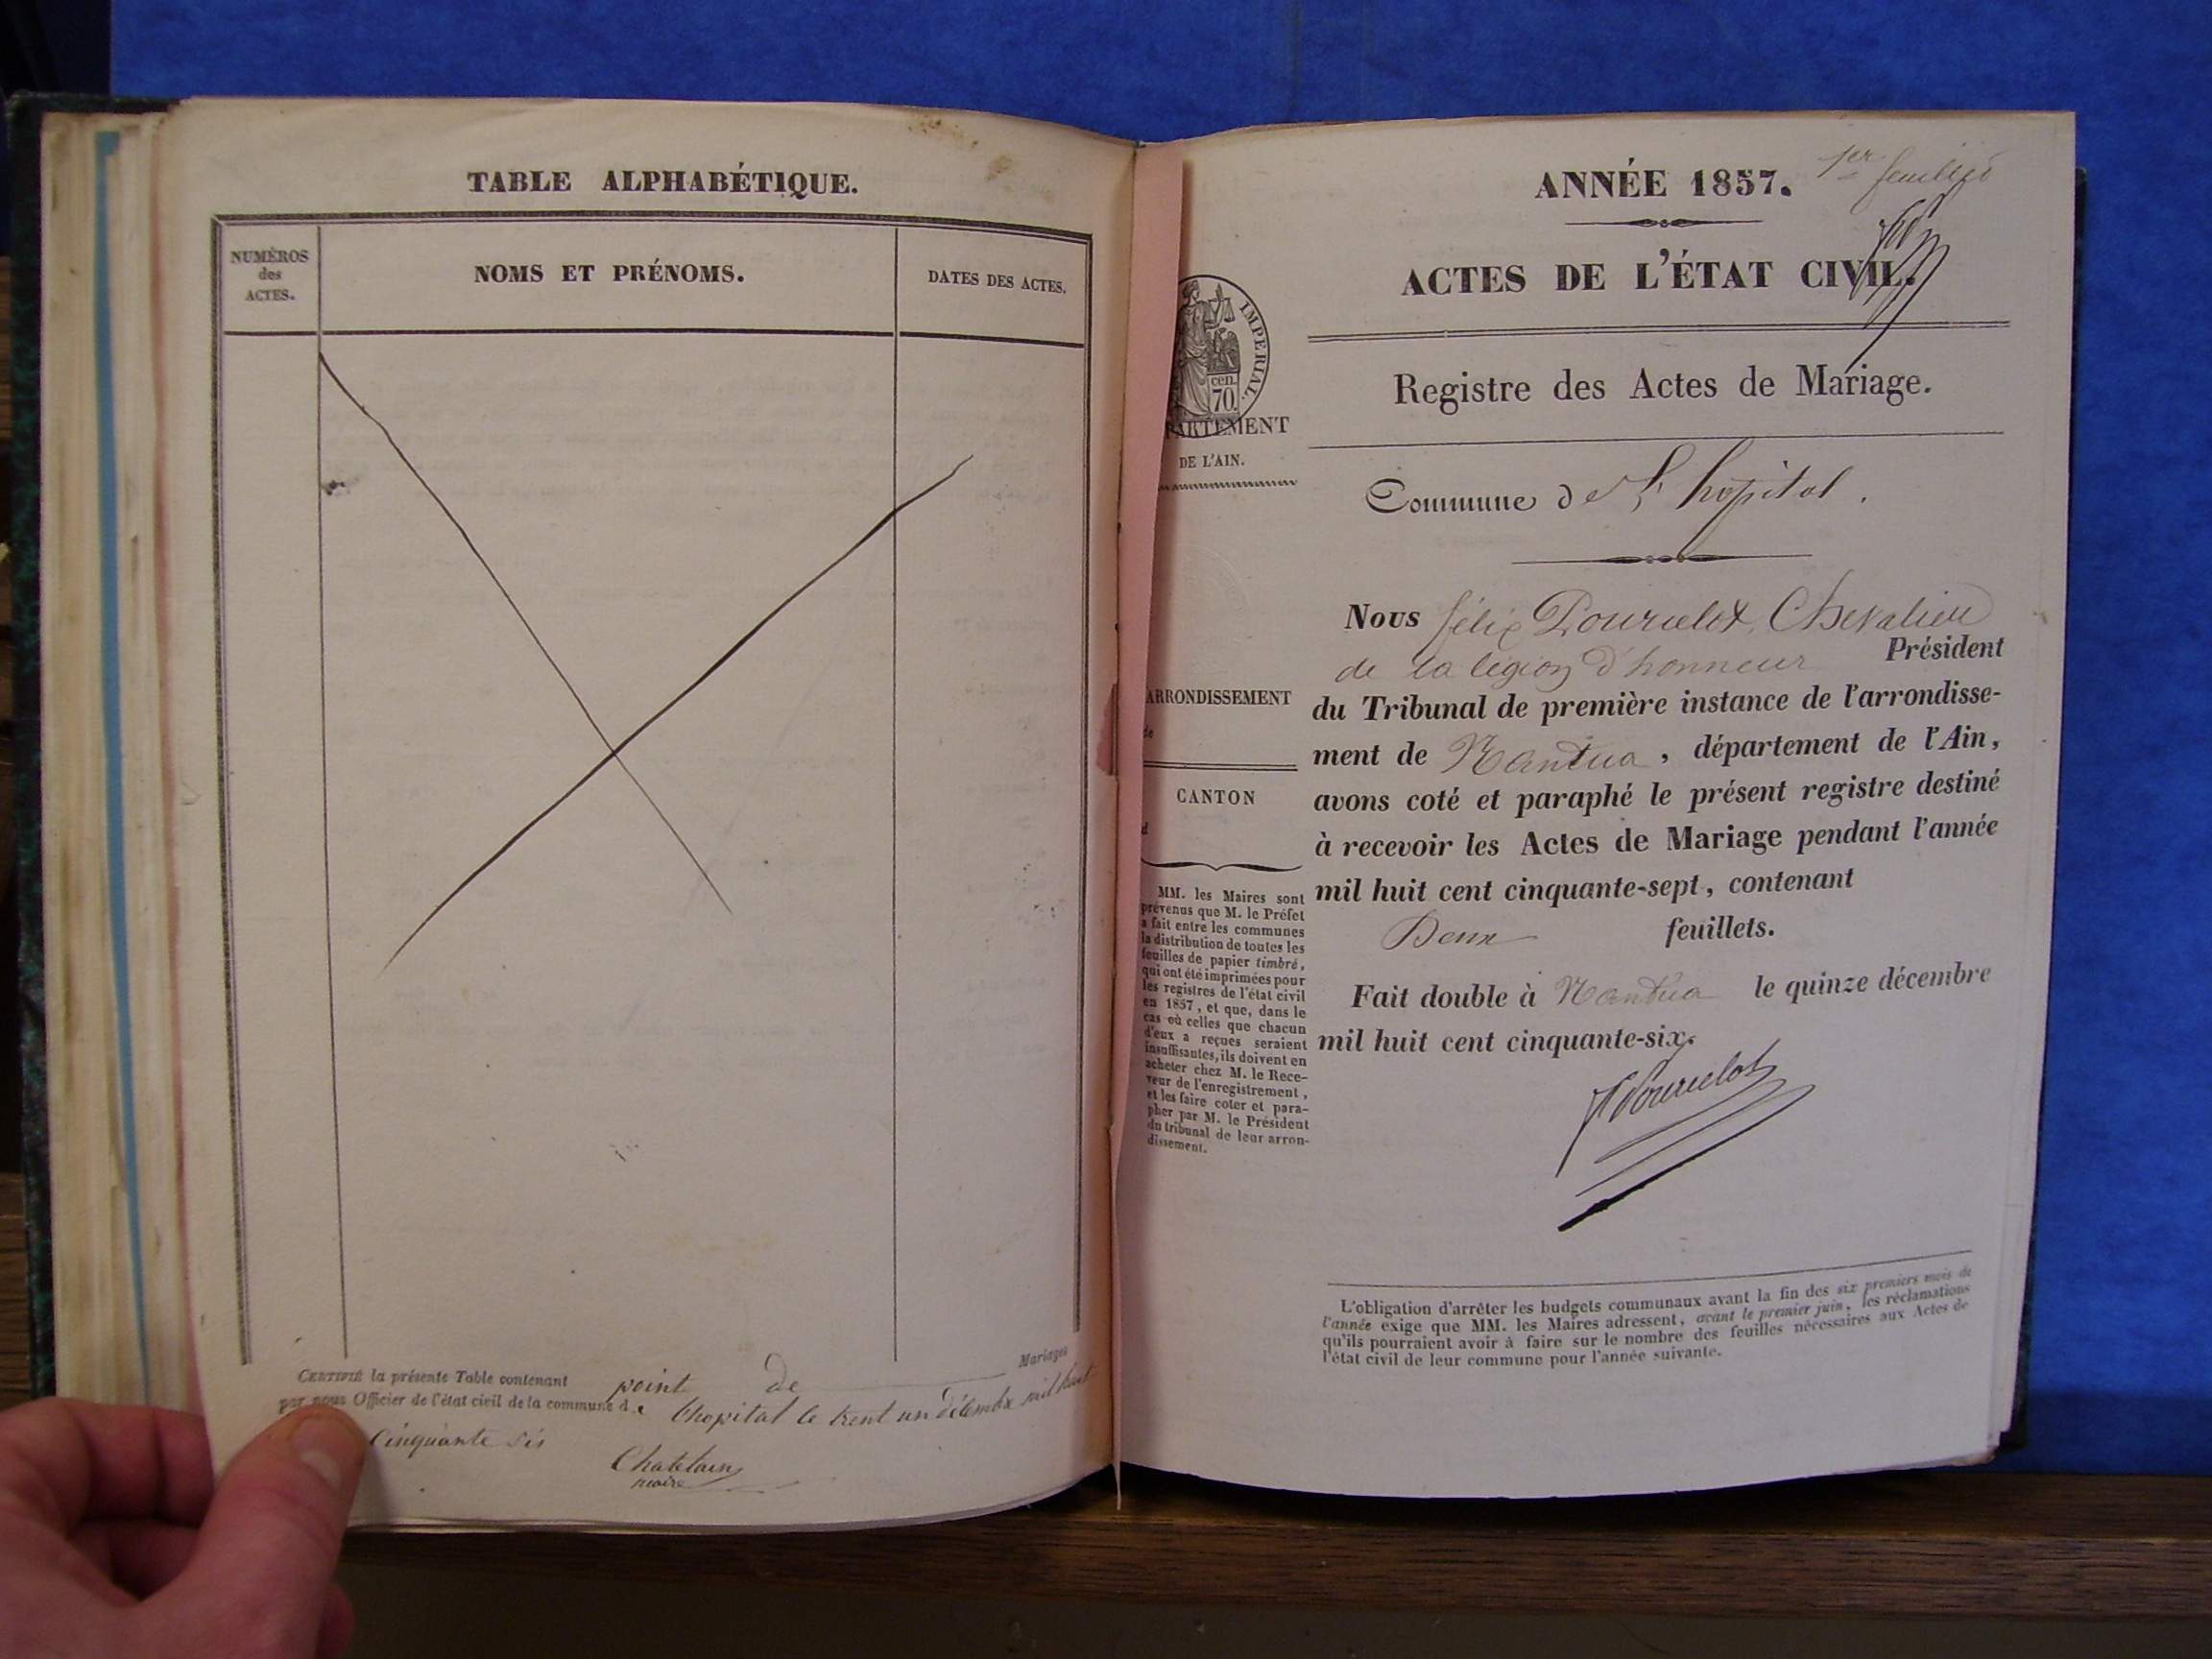 TABLE ALPHABÉTIQUE.
NUMÉROS
des
ACTES.
NOMS ET PRÉNOMS.
DATES DES ACTES.
CERTIFIÉ la présente Table contenant point de Mariages
par nous Officier de l'état civil de la commune de Lhopital le trent un décembre mil huit
Cinquante six
Chatelain
maire
ANNÉE 1857.
1er feuillet
ACTES DE L'ÉTAT CIVIL.
Registre des Actes de Mariage.
IMPERIAL.
cen.
70.
PARTEMENT
DE L'AIN.
Commune de L'hopital.
Nous félix Pourcelot, Chevalier
de la légion d'honneur Président
du Tribunal de première instance de l'arrondisse-
ment de Nantua, département de l'Ain,
avons coté et paraphé le présent registre destiné
à recevoir les Actes de Mariage pendant l'année
mil huit cent cinquante-sept, contenant
Deux feuillets.
Fait double à Nantua le quinze décembre
mil huit cent cinquante-six.
Pourcelot
ARRONDISSEMENT
de
CANTON
d
MM. les Maires sont
prévenus que M. le Préfet
a fait entre les communes
la distribution de toutes les
feuilles de papier timbré,
qui ont été imprimées pour
les registres de l'état civil
en 1857, et que, dans le
cas où celles que chacun
d'eux a reçues seraient
insuffisantes, ils doivent en
acheter chez M. le Rece-
veur de l'enregistrement,
et les faire coter et para-
pher par M. le Président
du tribunal de leur arron-
dissement.
L'obligation d'arrêter les budgets communaux avant la fin des six premiers mois de
l'année exige que MM. les Maires adressent, avant le premier juin, les réclamations
qu'ils pourraient avoir à faire sur le nombre des feuilles nécessaires aux Actes de
l'état civil de leur commune pour l'année suivante.